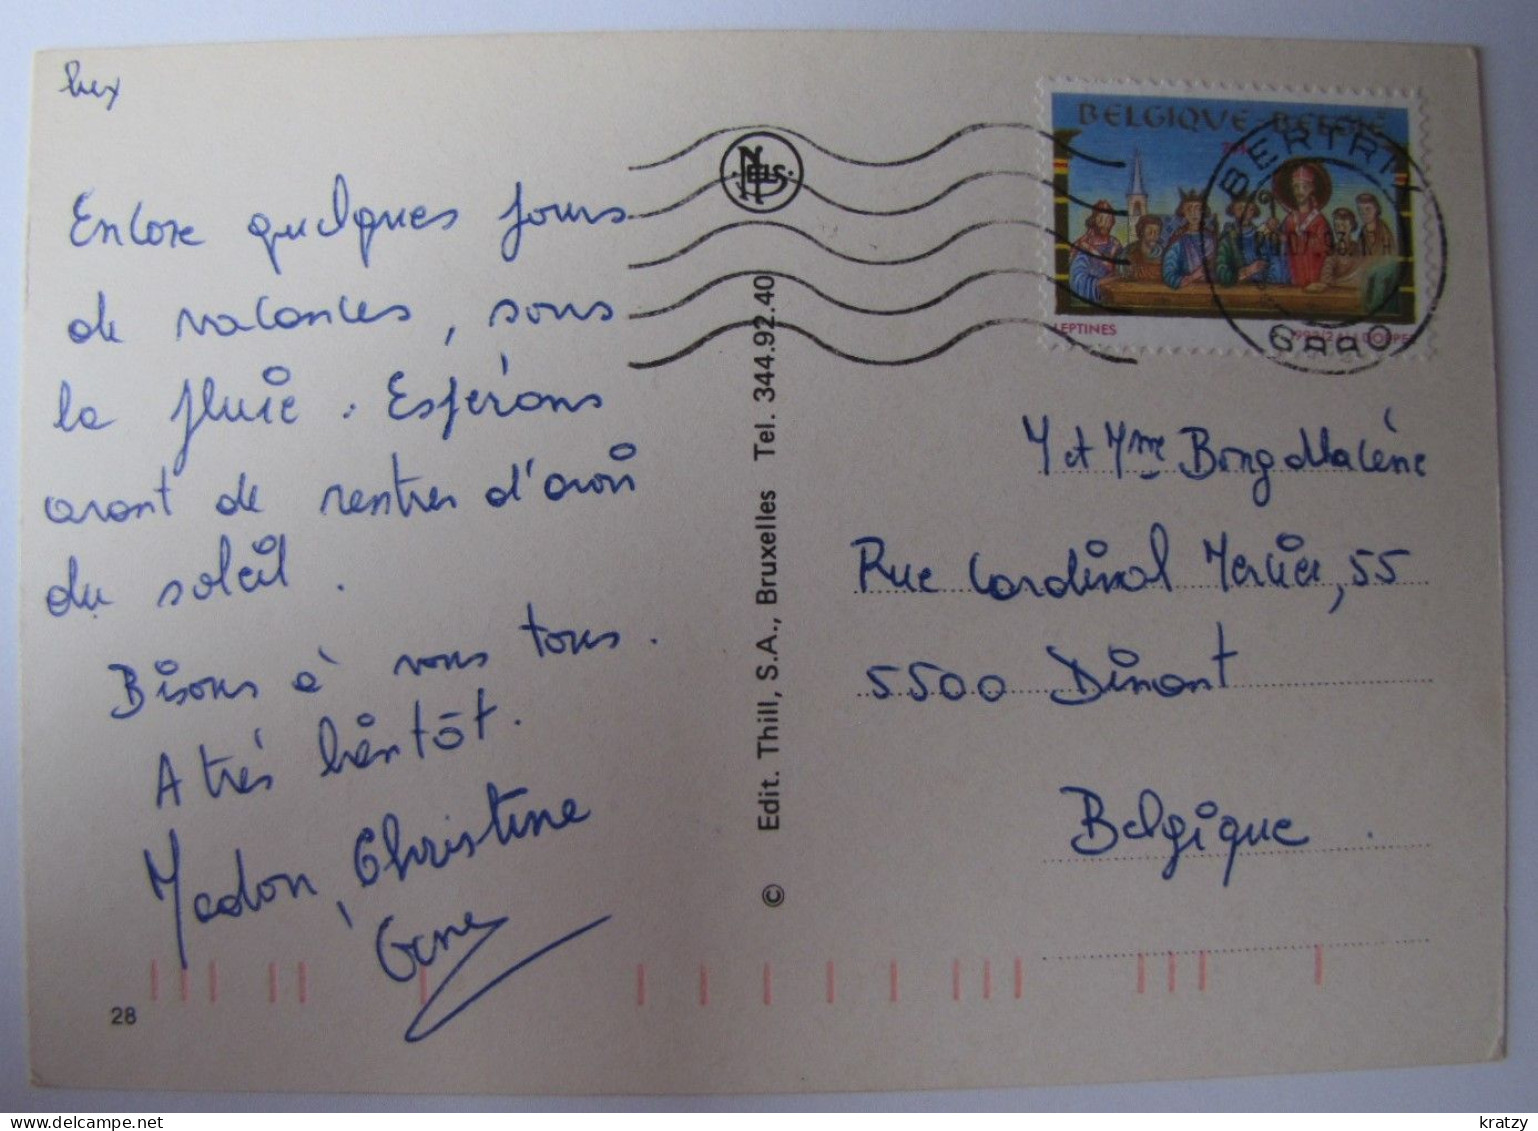 Encore quelques jours
de vacances, sous
la pluie. Espérons
avant de rentrer d'avoir
du soleil.
Bisous à vous tous.
A très bientôt.
Christine
28
© Edit. Thill, S.A., Bruxelles Tel. 344.92.40
BELGIQUE-BELGIË
LEPTINES
BERTRIX
6880
M et Mme Bong
Rue Cardinal Mercier, 55
5500 Dinant
Belgique.
kratzy